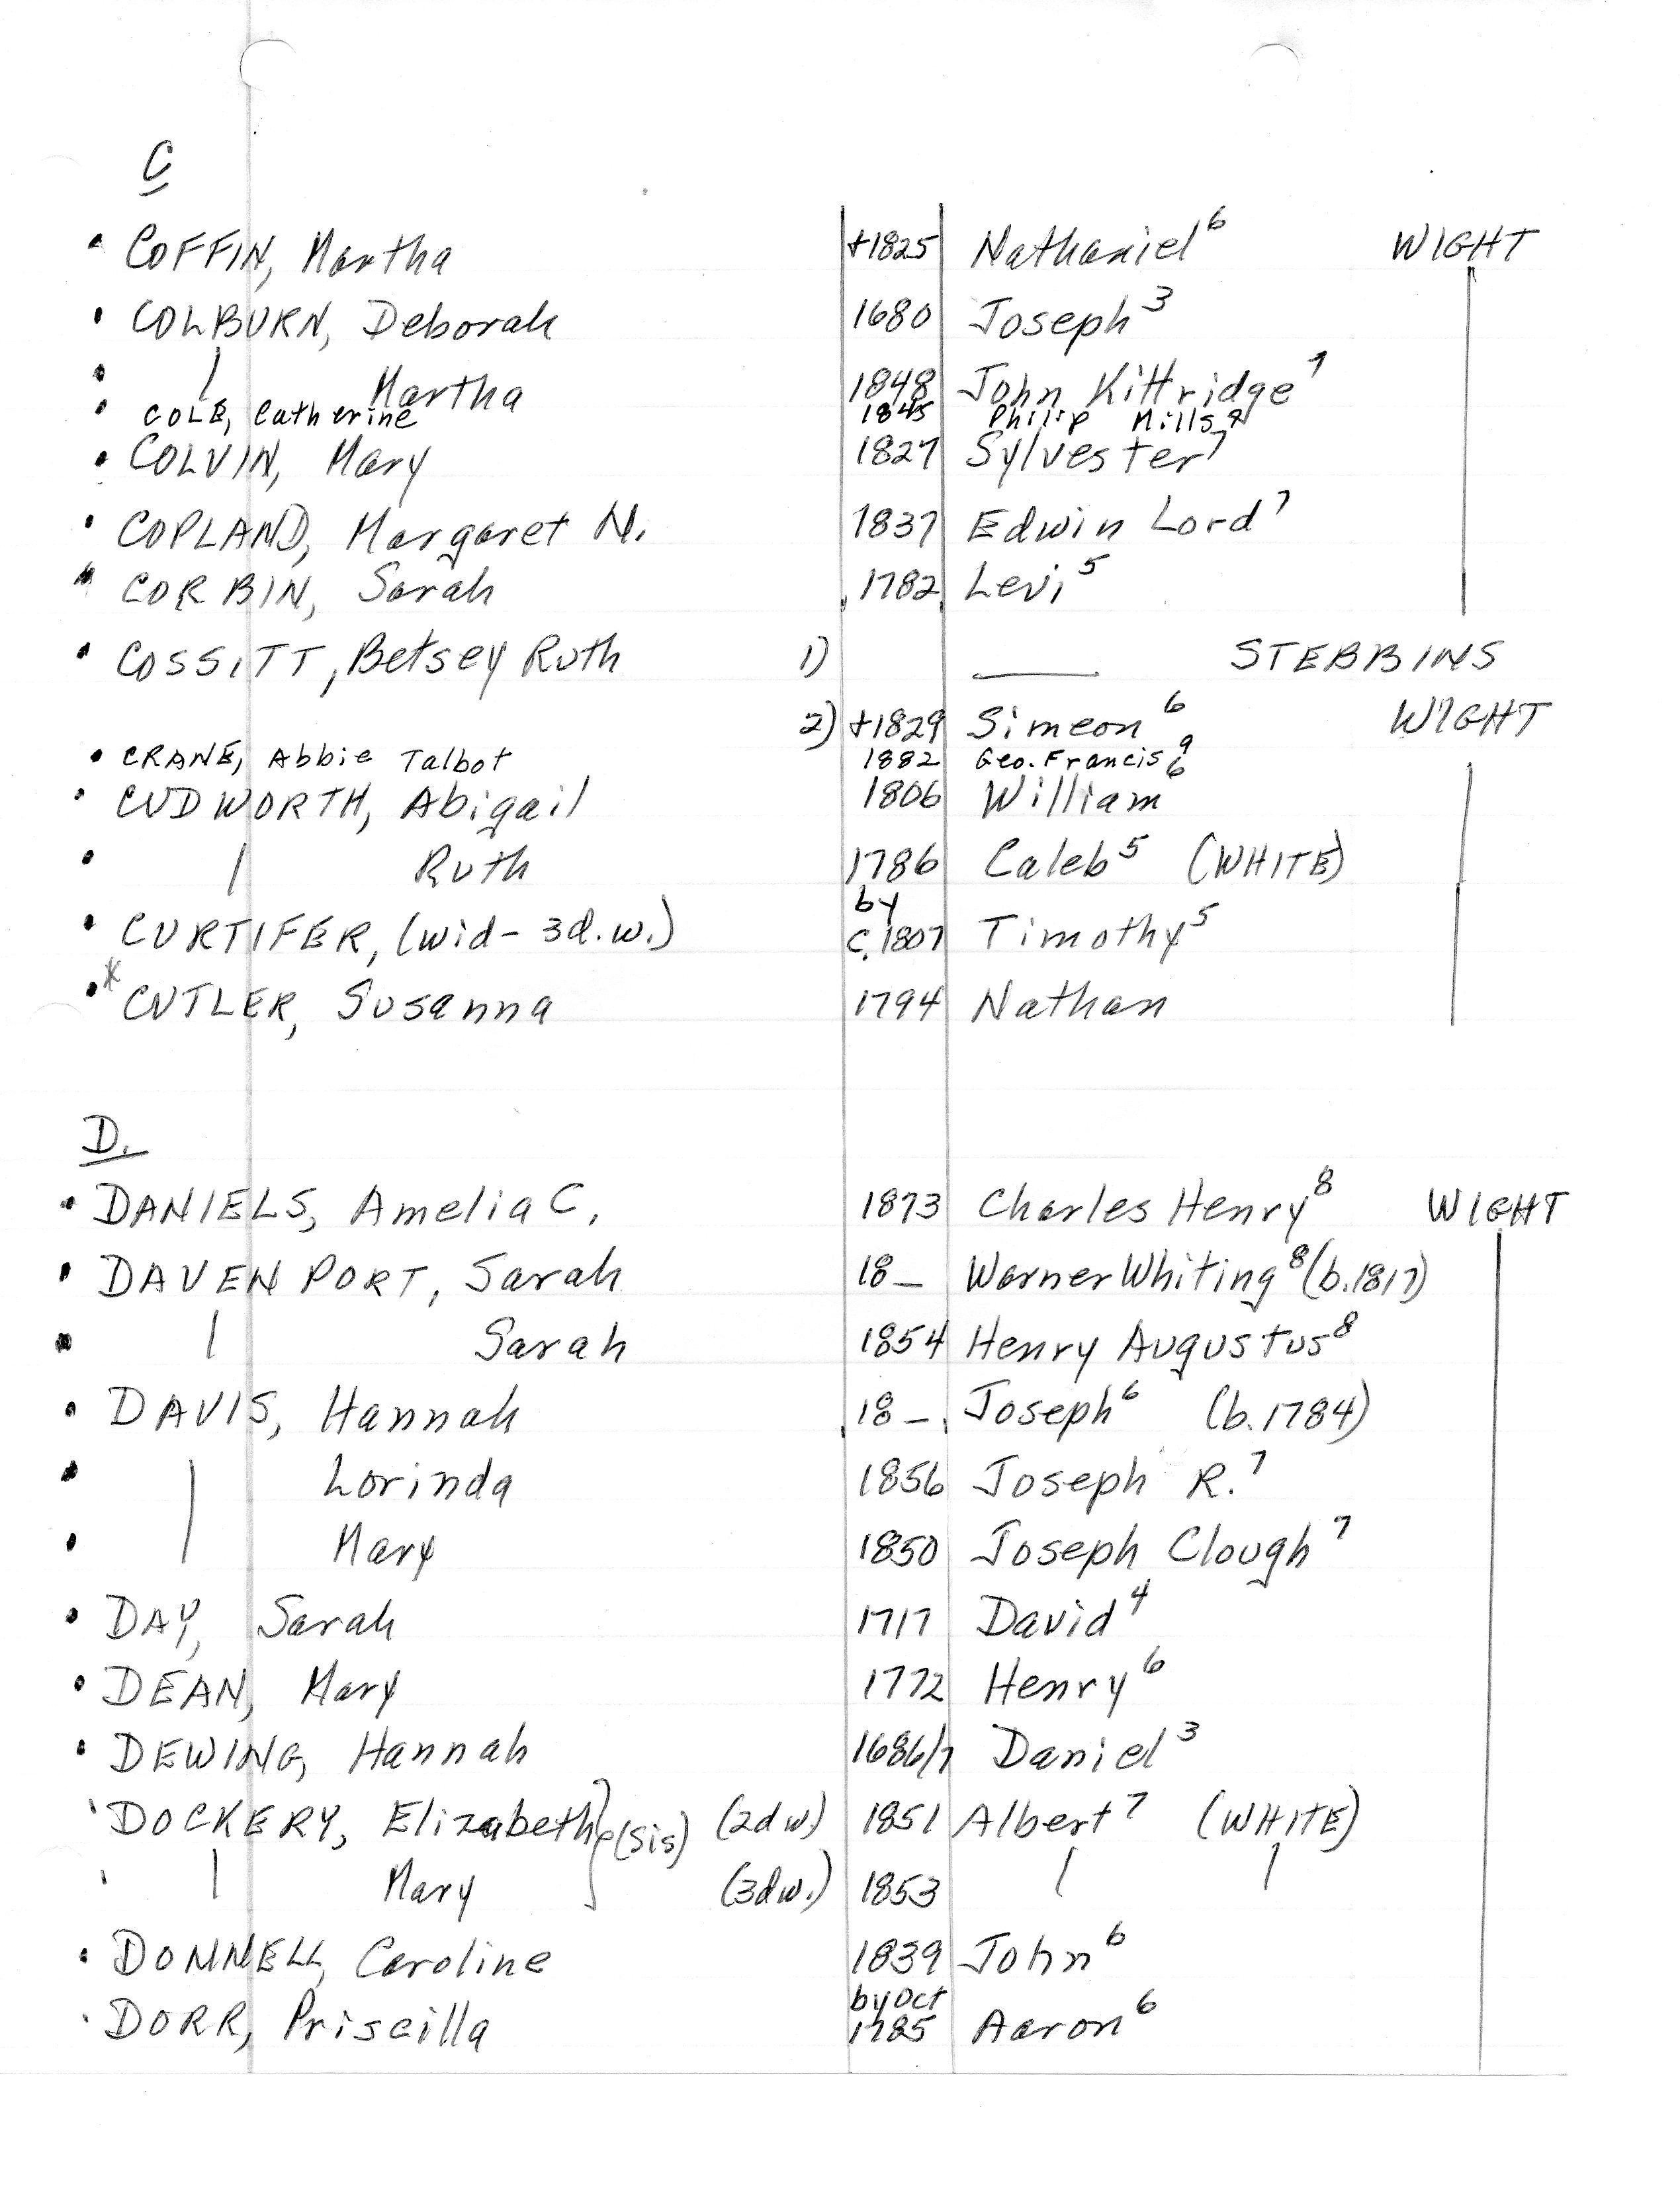 C
• COFFIN, Martha +1825 Nathaniel⁶ WIGHT
• COLBURN, Deborah 1680 Joseph³
• | Martha 1848 John Kittridge⁷
• COLE, Catherine 1845 Philip Mills⁸
• COLVIN, Mary 1827 Sylvester⁷
• COPLAND, Margaret N. 1837 Edwin Lord⁷
• CORBIN, Sarah 1782 Levi⁵
• COSSITT, Betsey Ruth 1) —— STEBBINS
2) +1829 Simeon⁶ WIGHT
• CRANE, Abbie Talbot 1882 Geo. Francis⁹
• CUDWORTH, Abigail 1806 William⁶
• | Ruth 1786 Caleb⁵ (WHITE)
• CURTIFER, (wid- 3d.w.) by c.1807 Timothy⁵
•* CUTLER, Susanna 1794 Nathan
D.
• DANIELS, Amelia C. 1873 Charles Henry⁸ WIGHT
• DAVENPORT, Sarah 18— Warner Whiting⁸ (b.1817)
• | Sarah 1854 Henry Augustus⁸
• DAVIS, Hannah 18— Joseph⁶ (b.1784)
• | Lorinda 1856 Joseph R.⁷
• | Mary 1850 Joseph Clough⁷
• DAY, Sarah 1717 David⁴
• DEAN, Mary 1772 Henry⁶
• DEWING, Hannah 1686/7 Daniel³
• DOCKERY, Elizabeth } (sis) (2d w) 1851 Albert⁷ (WHITE)
• | Mary } (3d w.) 1853 | |
• DONNELL, Caroline 1839 John⁶
• DORR, Priscilla by Oct 1785 Aaron⁶